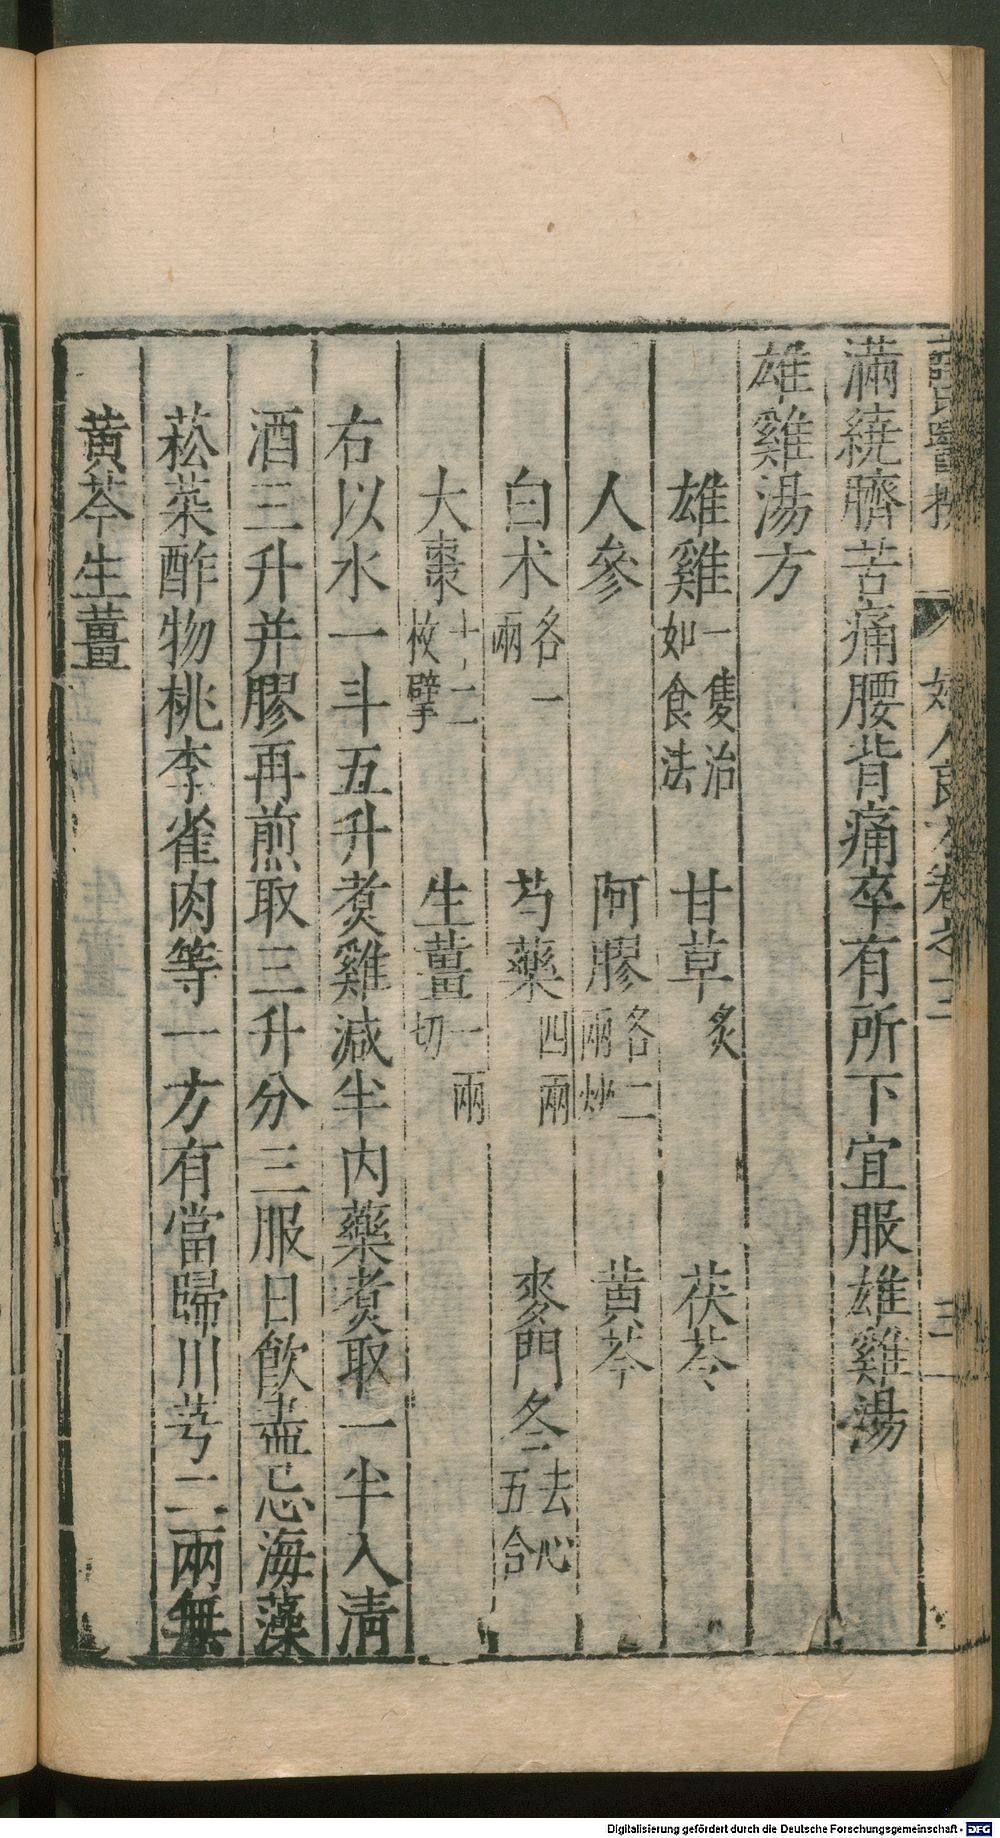 婦人良方卷之十二
三
滿繞臍苦痛腰背痛卒有所下宜服雄雞湯
雄雞湯方
雄雞一隻治如食法 甘草炙 茯苓
人參 阿膠各二兩炒 黄芩
白术各一兩 芍藥四兩 麥門冬去心五合
大棗十二枚擘 生薑一兩切
右以水一斗五升煮雞減半内藥煮取一半入清
酒三升并膠再煎取三升分三服日飲盡忌海藻
菘菜酢物桃李雀肉等一方有當歸川芎二兩無
黄芩生薑
Digitalisierung gefördert durch die Deutsche Forschungsgemeinschaft - DFG